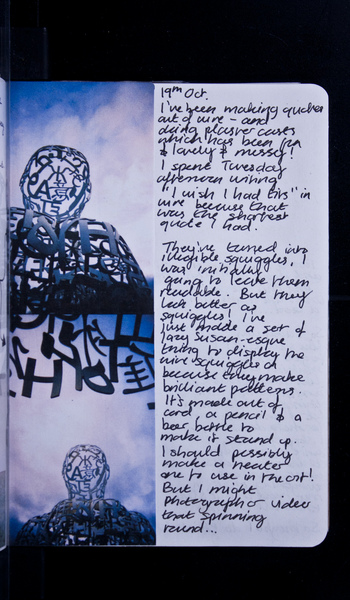 19th Oct.
I've been making quotes
out of wire - and
doing plaster casts
which has been fun
& lovely & messy!
I spent Tuesday
afternoon writing
"I wish I had tits" in
wire because that
was the shortest
quote I had.
They've turned into
illegible squiggles. I
was initially
going to leave them
readable. But they
look better as
squiggles! I've
just made a set of
lazy susan-esque
thing to display the
wire squiggles on
because they make
brilliant patterns.
It's made out of
card, a pencil & a
beer bottle to
make it stand up.
I should possibly
make a neater
one to use in the crit!
But I might
photograph or video
that spinning
round...